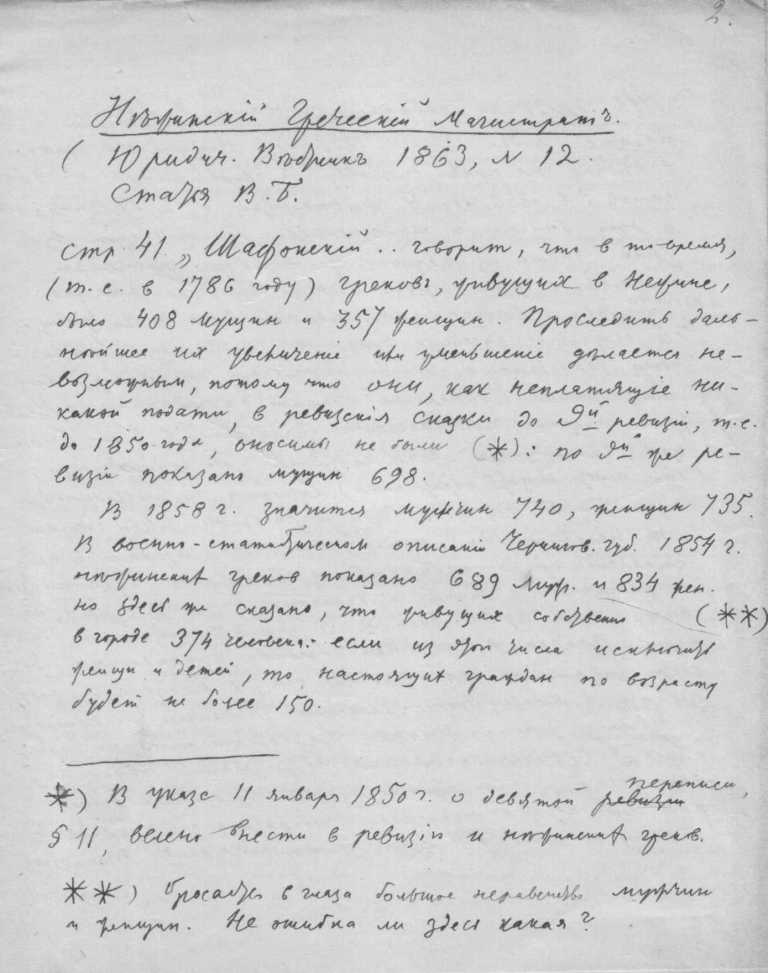 2.
Нѣжинскій Греческій Магистратъ.
( Юридич. Вѣстникъ 1863, N 12.
Статья В. Б.
Стр. 41 „Шафонскій .. говорит, что в то время,
(т. е. в 1786 году) грековъ, живущих в Нежине,
было 408 мущин и 357 женщин. Проследить даль-
нѣйшее их увеличеніе или уменьшеніе дѣлается не-
возможным, потому что они, как неплатящіе ни-
какой подати, в ревизскія сказки до 9й ревизіи, т. е.
до 1850 года, вносимы не были (*): по 9й же ре-
визіи показано мущин 698.
В 1858 г. значится мужчин 740, женщин 735.
В военно-статистическом описаніи Чернигов. губ. 1854 г.
нѣжинских греков показано 689 муж. и 834 жен.
но здесь же сказано, что живущих собственно (**)
в городе 374 человека: если из этого числа исключить
женщин и детей, то настоящих граждан по возрасту
будет не более 150.
*) В указе 11 января 1850 г. о девятой ревизіи переписи,
§ 11, велено внести в ревизію и нѣжинских греков.
**) Бросается в глаза большое неравенство мужчин
и женщин. Не ошибка ли здесь какая?